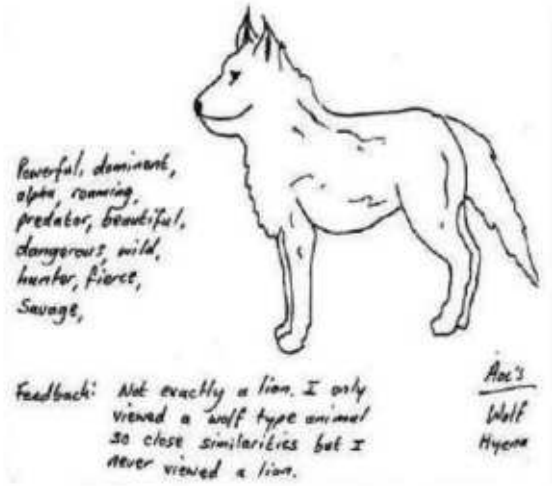 Powerful, dominant,
alpha, roaming,
predator, beautiful,
dangerous, wild,
hunter, fierce,
Savage,
Feedback: Not exactly a lion. I only
viewed a wolf type animal
so close similarities but I
never viewed a lion.
AOL's
Wolf
Hyena